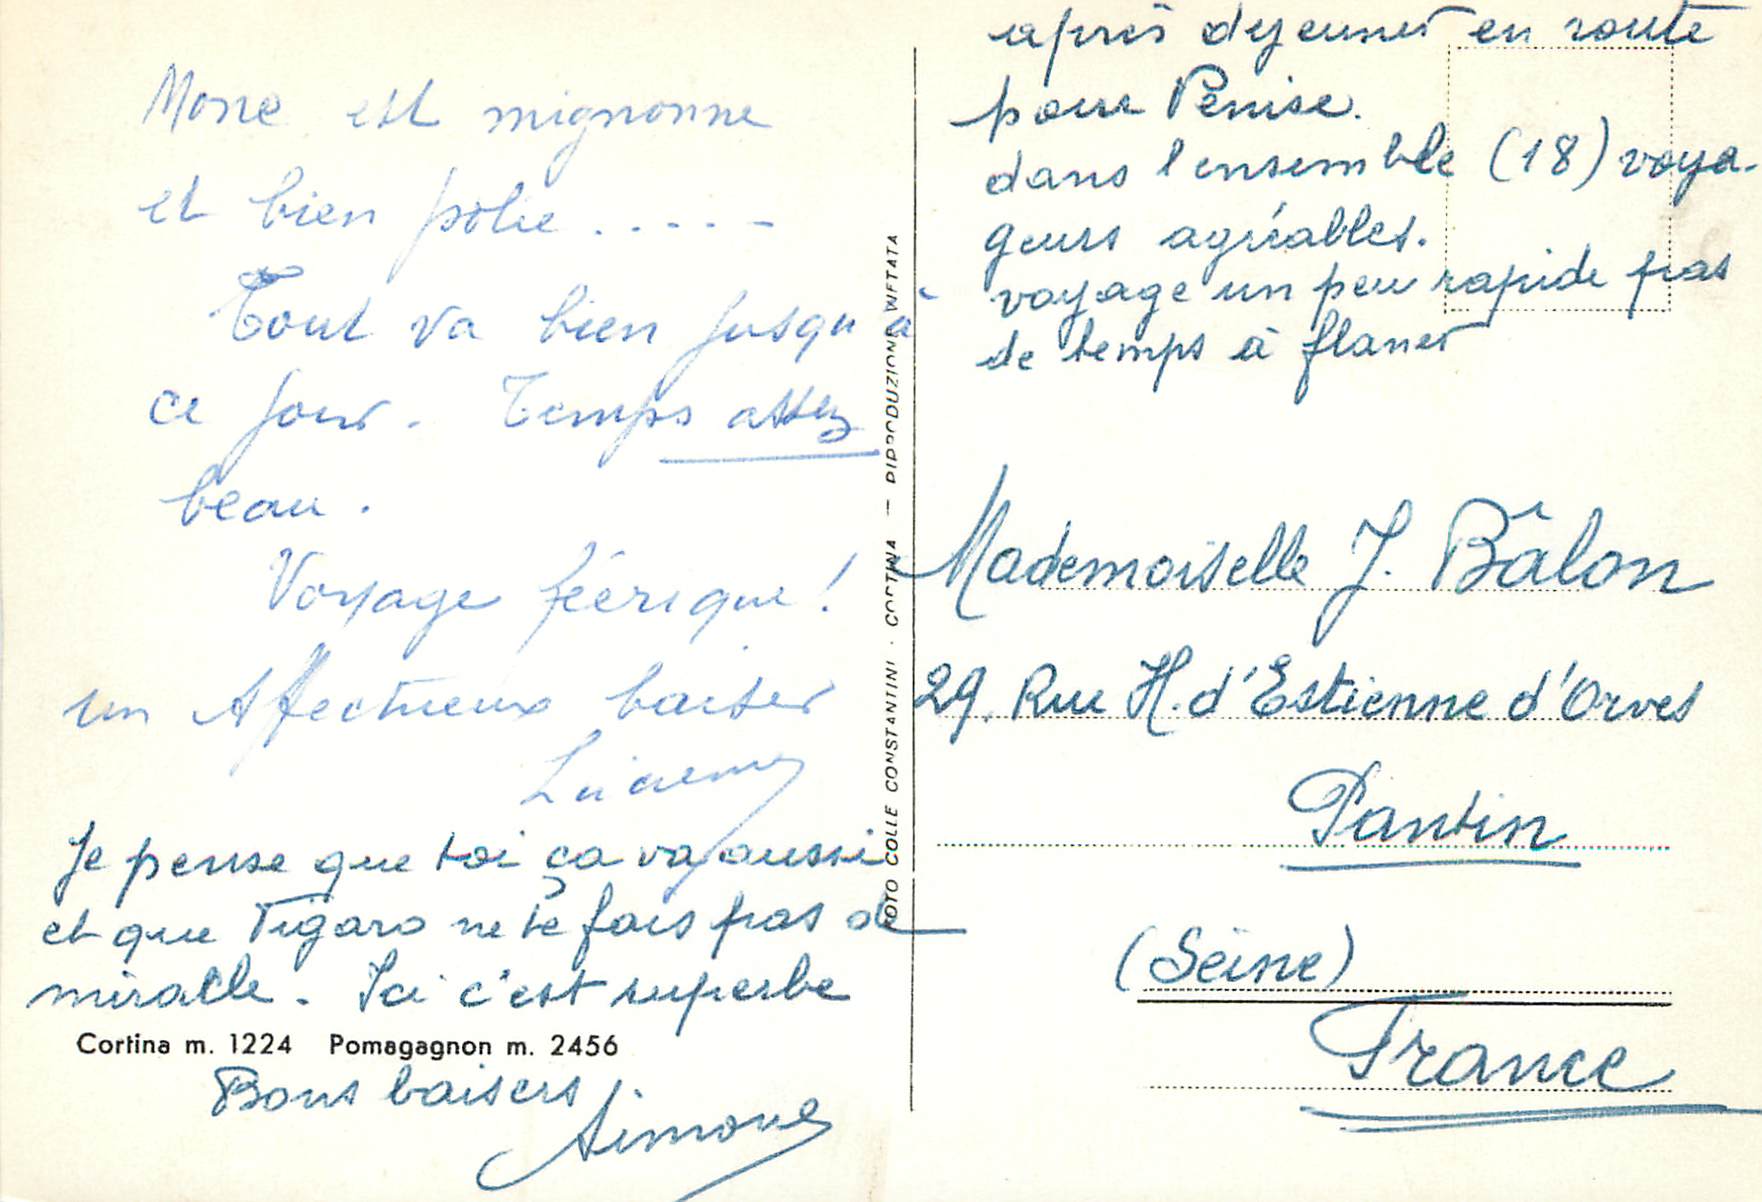 Mone est mignonne
et bien polie . . . . .
Tout va bien jusqu'à
ce jour. Temps assez
beau.
Voyage féérique !
un Affectueux baiser
Je pense que toi ça va aussi
et que Figaro ne te fais pas de
miracle. Ici c'est superbe
Cortina m. 1224 Pomagagnon m. 2456
Bons baisers
Simone
FOTO COLLE CONSTANTINI - CORTINA — RIPRODUZIONE VIETATA
après dejeuner en route
pour Venise.
dans l'ensemble (18) voya-
geurs agréables.
voyage un peu rapide pas
de temps à flaner
Mademoiselle J. Bâlon
29. Rue H. d'Estienne d'Orves
Pantin
(Seine)
France